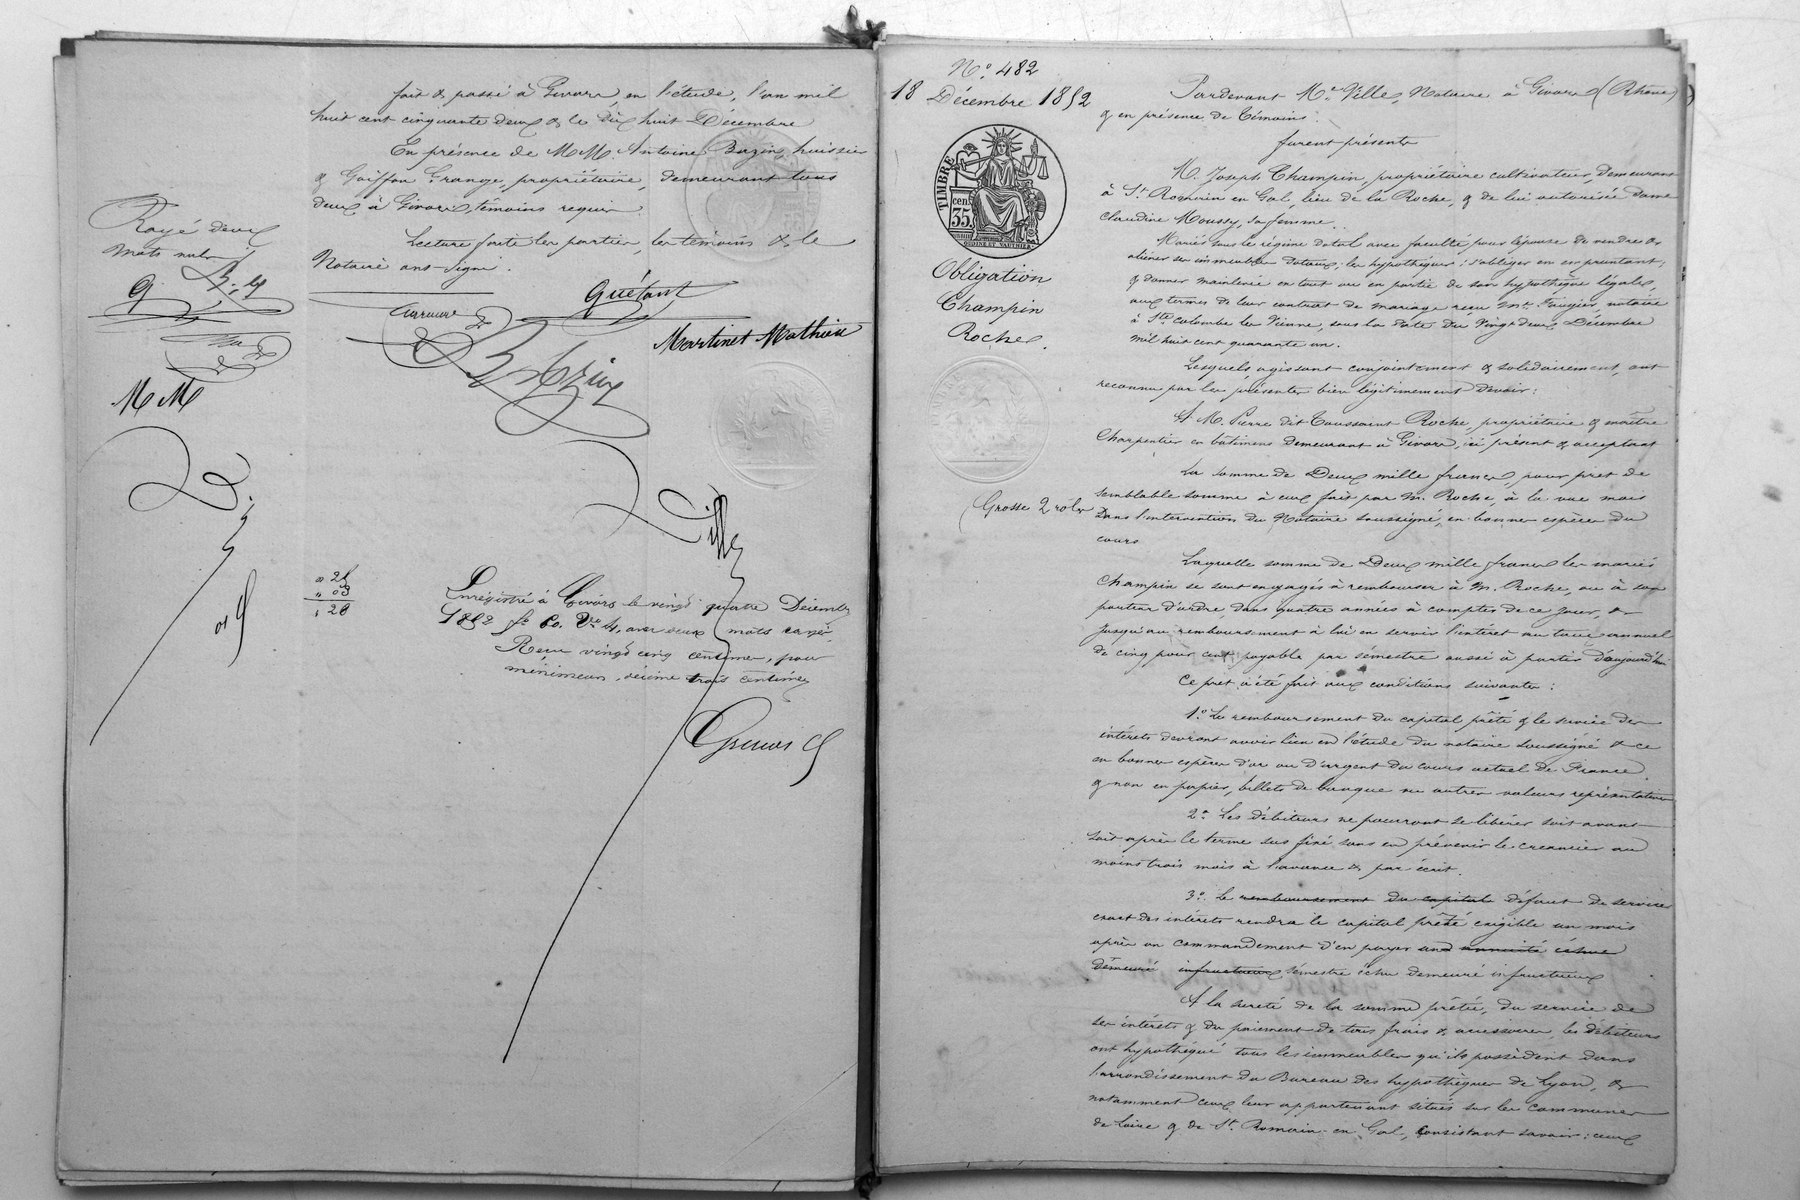 fait & passé à Givors, en l'étude, l'an mil
huit cent cinquante deux & le dix huit Décembre
En présence de MM. Antoine Bazin, huissier
& Goiffon Grange, propriétaire, demeurant tous
deux à Givors, témoins requis
Lecture faite les parties, les témoins & le
Notaire ont signé.
Rayé deux
mots nuls
G
B. y
Guétant
Martinet Mathieu
Bazin
M M
Ville
" 25
" 03
" 28
Enregistré à Givors le vingt quatre Décembre
1852 fo 60. Vo C. 4, avec deux mots rayés.
Reçu vingt cinq centimes, pour
décime trois centimes
No. 482
18 Décembre 1852
TIMBRE
35 cen.
Obligation
Champin
Roche.
Grosse 2 roles
Pardevant Me. Ville, Notaire à Givors (Rhône)
& en présence de Témoins.
furent présents
M. Joseph Champin, propriétaire cultivateur, demeurant
à St. Romain en Gal, lieu de la Roche, & de lui autorisée Dame
Claudine Moussy, sa femme.
Mariés sous le régime dotal avec faculté pour l'épouse de vendre &
aliener ses immeubles dotaux, les hypothéquer, s'obliger en empruntant,
& donner mainlevée en tout ou en partie de son hypothèque légale,
aux termes de leur contrat de mariage reçu Me. notaire
à Ste. Colombe les Vienne, sous la date du vingt deux Décembre
mil huit cent quarante un.
Lesquels agissant conjointement & solidairement, ont
reconnu par les présentes bien légitimement devoir:
A M. Pierre dit Toussaint Roche, propriétaire & maître
Charpentier en bâtimens demeurant à Givors, ici présent & acceptant
La somme de Deux mille francs, pour pret de
semblable somme à eux fait par M. Roche, à la vue mais
dans l'intervention du Notaire soussigné, en bonnes espèces du
cours
Laquelle somme de Deux mille francs les mariés
Champin se sont engagés à rembourser à M. Roche, ou à son
porteur d'ordre, dans quatre années à compter de ce jour, &
jusqu'au remboursement à lui en servir l'intérêt au taux annuel
de cinq pour cent payable par sémestre aussi à partir d'aujourd'hui
Ce pret a été fait aux conditions suivantes:
1o. Le remboursement du capital prêté & le service des
intérêts devront avoir lieu en l'étude du notaire soussigné & ce
en bonnes espèces d'or ou d'argent du cours actuel de France
& non en papier, billets de banque ou autres valeurs représentatives
2o. Les débiteurs ne pourront se libérer soit avant
soit après le terme sus fixé sans en prévenir le creancier au
moins trois mois à l'avance & par écrit.
3o. Le remboursement du capital défaut de service
exact des intérêts rendra le capital prêté exigible un mois
après un commandement d'en payer une annuité échue
demeuré infructueux sémestre échu demeuré infructueux
A la sureté de la somme prêtée, du service de
ses intérêts & du paiement de tous frais & accessoires, les débiteurs
ont hypothéqué tous les immeubles qu'ils possèdent dans
l'arrondissement du Bureau des hypothèques de Lyon, &
notamment ceux leur appartenant situés sur les communes
de Loire & de St. Romain en Gal, consistant savoir: ceux